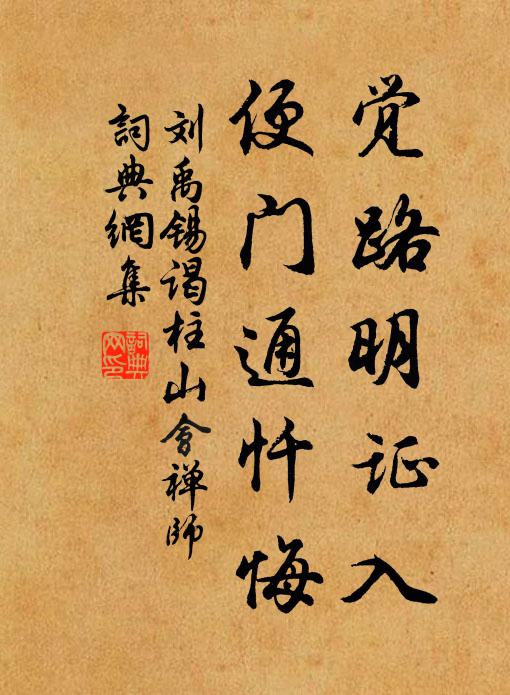 觉路明证入
便门通忏悔
刘禹锡谒柱山會禅師
詞典網集
詞典
网印